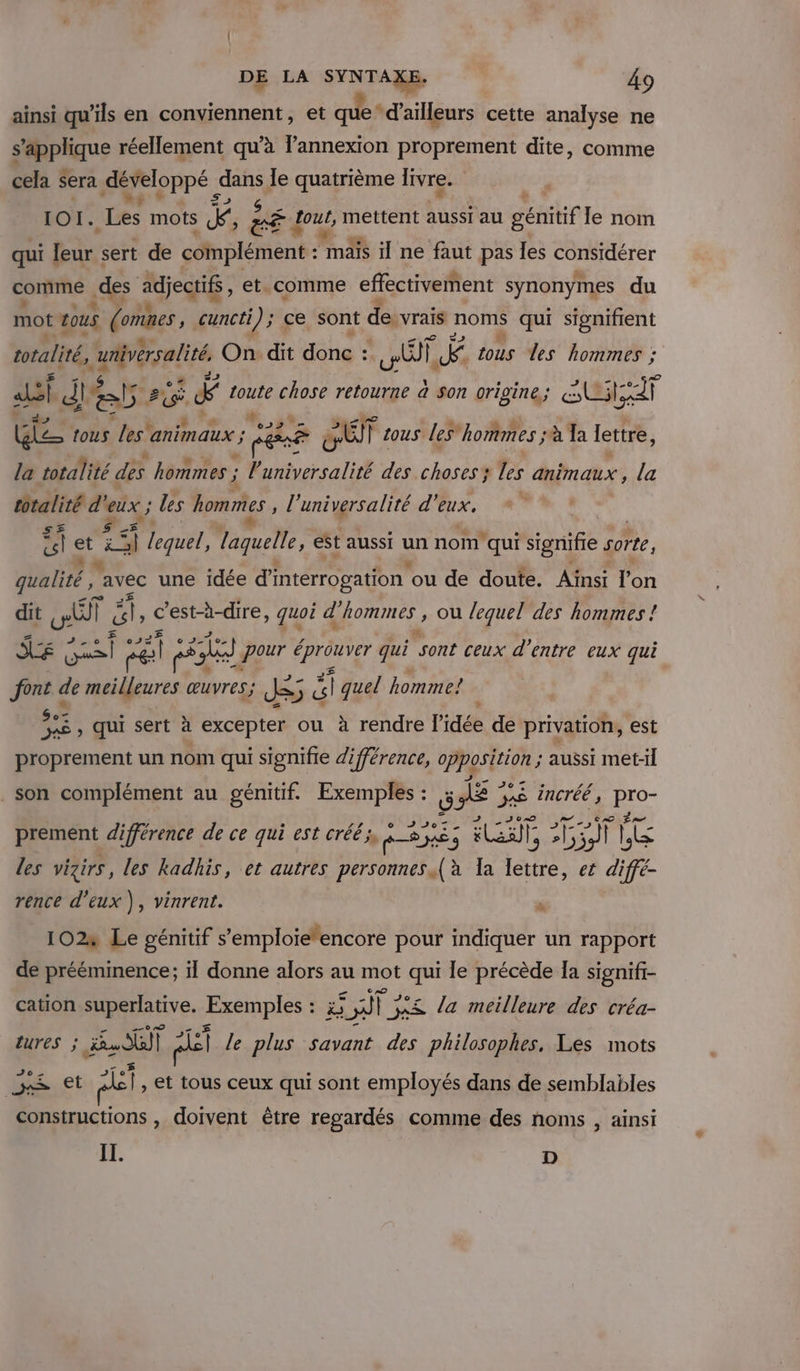 DE LA SYNTAXE. 49
ainsi qu'ils en conviennent, et que d'ailleurs cette analyse ne
s'applique réellement qu'à l'annexion proprement dite, comme
cela sera développé dans le quatrième livre.
101. Les mots كُلّ, جَمِيعٌ tout, mettent aussi au génitif le nom
qui leur sert de complément : mais il ne faut pas les considérer
comme des adjectifs, et comme effectivement synonymes du
mot tous (omnes, cuncti); ce sont de vrais noms qui signifient
totalité, universalité. On dit donc : كُلُّ النَّاسِ tous les hommes ;
كُلُّ شَيْءٍ رَاجِعٌ إِلَى أَصْلِهِ toute chose retourne à son origine; الْحَيَوَانَاتُ
كُلُّهَا tous les animaux; النَّاسُ جَمِيعُهُمْ tous les hommes ; à la lettre,
la totalité des hommes ; l'universalité des choses ; les animaux, la
totalité d'eux ; les hommes, l'universalité d'eux.
أَيٌّ et أَيَّةٌ lequel, laquelle, est aussi un nom qui signifie sorte,
qualité, avec une idée d'interrogation ou de doute. Ainsi l'on
dit أَيُّ النَّاسِ, c'est-à-dire, quoi d'hommes, ou lequel des hommes !
لِنَبْلُوَهُمْ أَيُّهُمْ أَحْسَنُ عَمَلًا pour éprouver qui sont ceux d'entre eux qui
font de meilleures œuvres; أَيُّ رَجُلٍ quel homme!
غَيْرُ, qui sert à excepter ou à rendre l'idée de privation, est
proprement un nom qui signifie différence, opposition ; aussi met-il
son complément au génitif. Exemples : غَيْرُ مَخْلُوقٍ incréé, pro-
prement différence de ce qui est créé; جَاءَ الْوُزَرَاءُ وَالْقُضَاةُ وَغَيْرُهُمْ
les vizirs, les kadhis, et autres personnes (à la lettre, et diffé-
rence d'eux), vinrent.
102. Le génitif s'emploie encore pour indiquer un rapport
de prééminence; il donne alors au mot qui le précède la signifi-
cation superlative. Exemples : خَيْرُ الْبَرِيَّةِ la meilleure des créa-
tures ; أَعْلَمُ الْفَلَاسِفَةِ le plus savant des philosophes. Les mots
خَيْرُ et أَعْلَمُ, et tous ceux qui sont employés dans de semblables
constructions, doivent être regardés comme des noms, ainsi
II. D